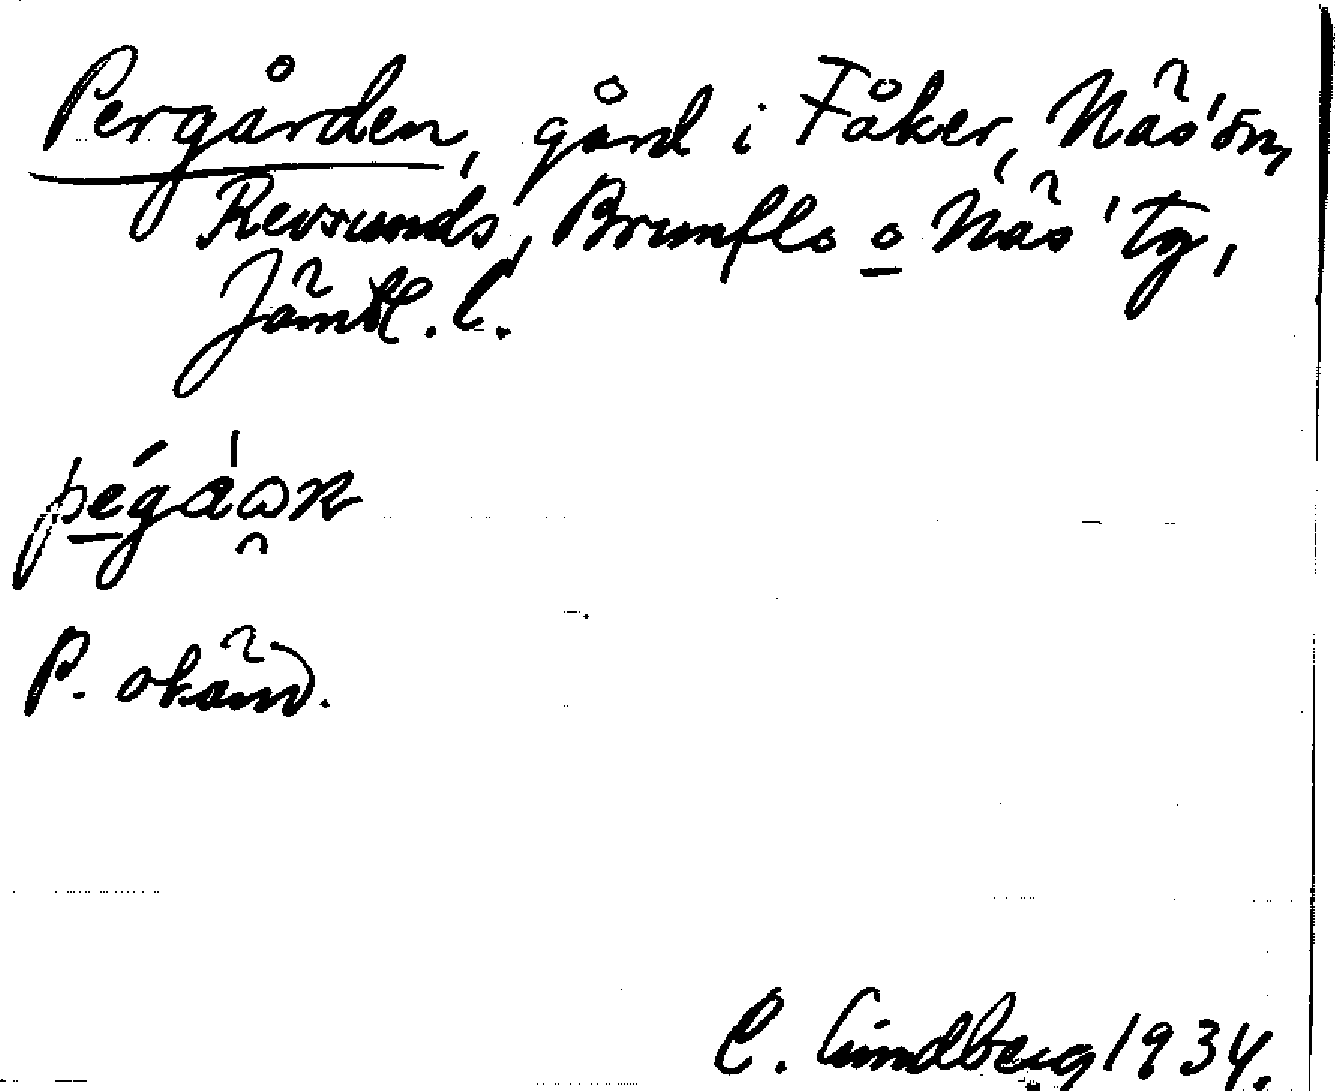 Pergården, gård i Fåker, Näs' sn,
Revsunds, Brunflo o Näs' tg,
Jämtl. l.
P. okänd.
C. Lindberg 1934.